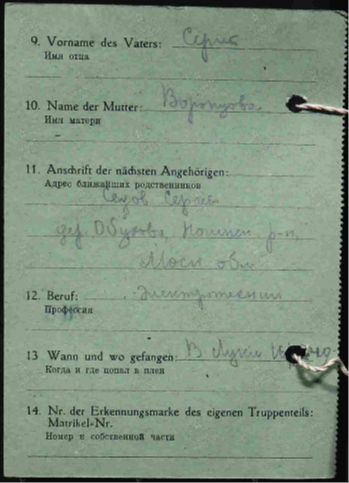 9. Vorname des Vaters:
Имя отца
10. Name der Mutter: Воронцова
Имя матери
11. Anschrift der nächsten Angehörigen:
Адрес ближайших родственников
Седов
дер. р-н,
Моск обл
12. Beruf: Электротехник
Профессия
13 Wann und wo gefangen: В Луки
Когда и где попал в плен
14. Nr. der Erkennungsmarke des eigenen Truppenteils:
Matrikel-Nr.
Номер и собственной части